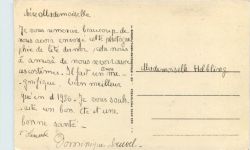 Mademoiselle
Je vous remercie beaucoup de
nous avoir envoyé cette photogra-
phie de l'été dernier, cela nous
a amusé de nous revoir avec
les costumes. Il fait un temps ma-
gnifique bien meilleur
qu'en 1920. Je vous souh-
aite un bon été et d'une
bonne santé.
Dominique
Mademoiselle Helbling